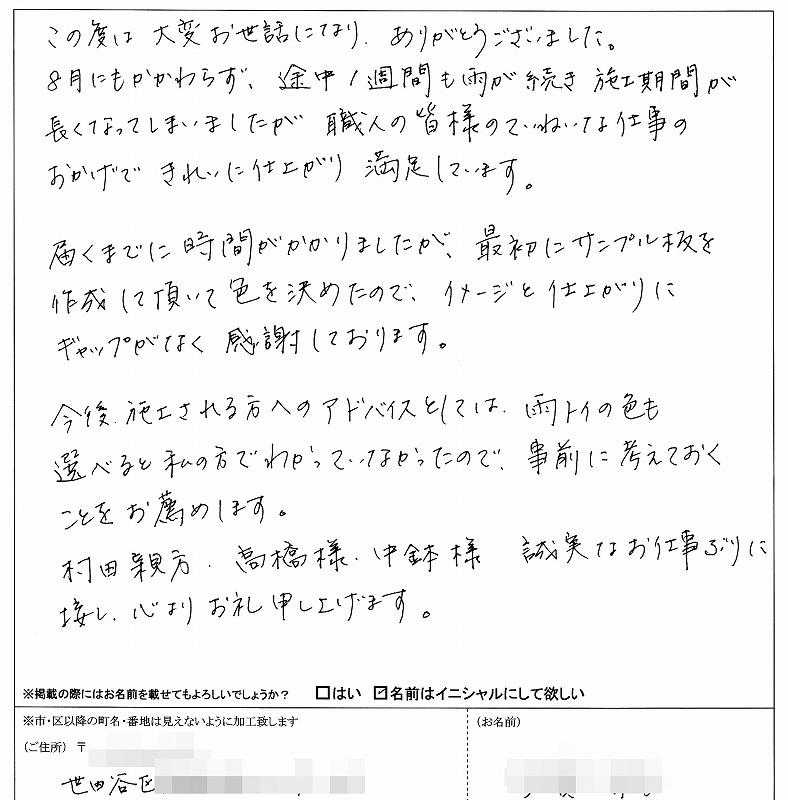 この度は 大変お世話になり、ありがとうございました。
8月にもかかわらず、途中1週間も雨が続き 施工期間が
長くなってしまいましたが 職人の皆様のていねいな仕事の
おかげで きれいに仕上がり 満足しています。
届くまでに時間がかかりましたが、最初にサンプル板を
作成して頂いて色を決めたので、イメージと仕上がりに
ギャップがなく 感謝しております。
今後、施工される方へのアドバイスとしては、雨トイの色も
選べると私の方でわかっていなかったので、事前に考えておく
ことをお薦めします。
村田親方、高橋様、中鉢様 誠実なお仕事ぶりに
接し、心よりお礼申し上げます。
※掲載の際にはお名前を載せてもよろしいでしょうか？ □はい ☑名前はイニシャルにして欲しい
※市・区以降の町名・番地は見えないように加工致します
(お名前)
(ご住所) 〒
世田谷区